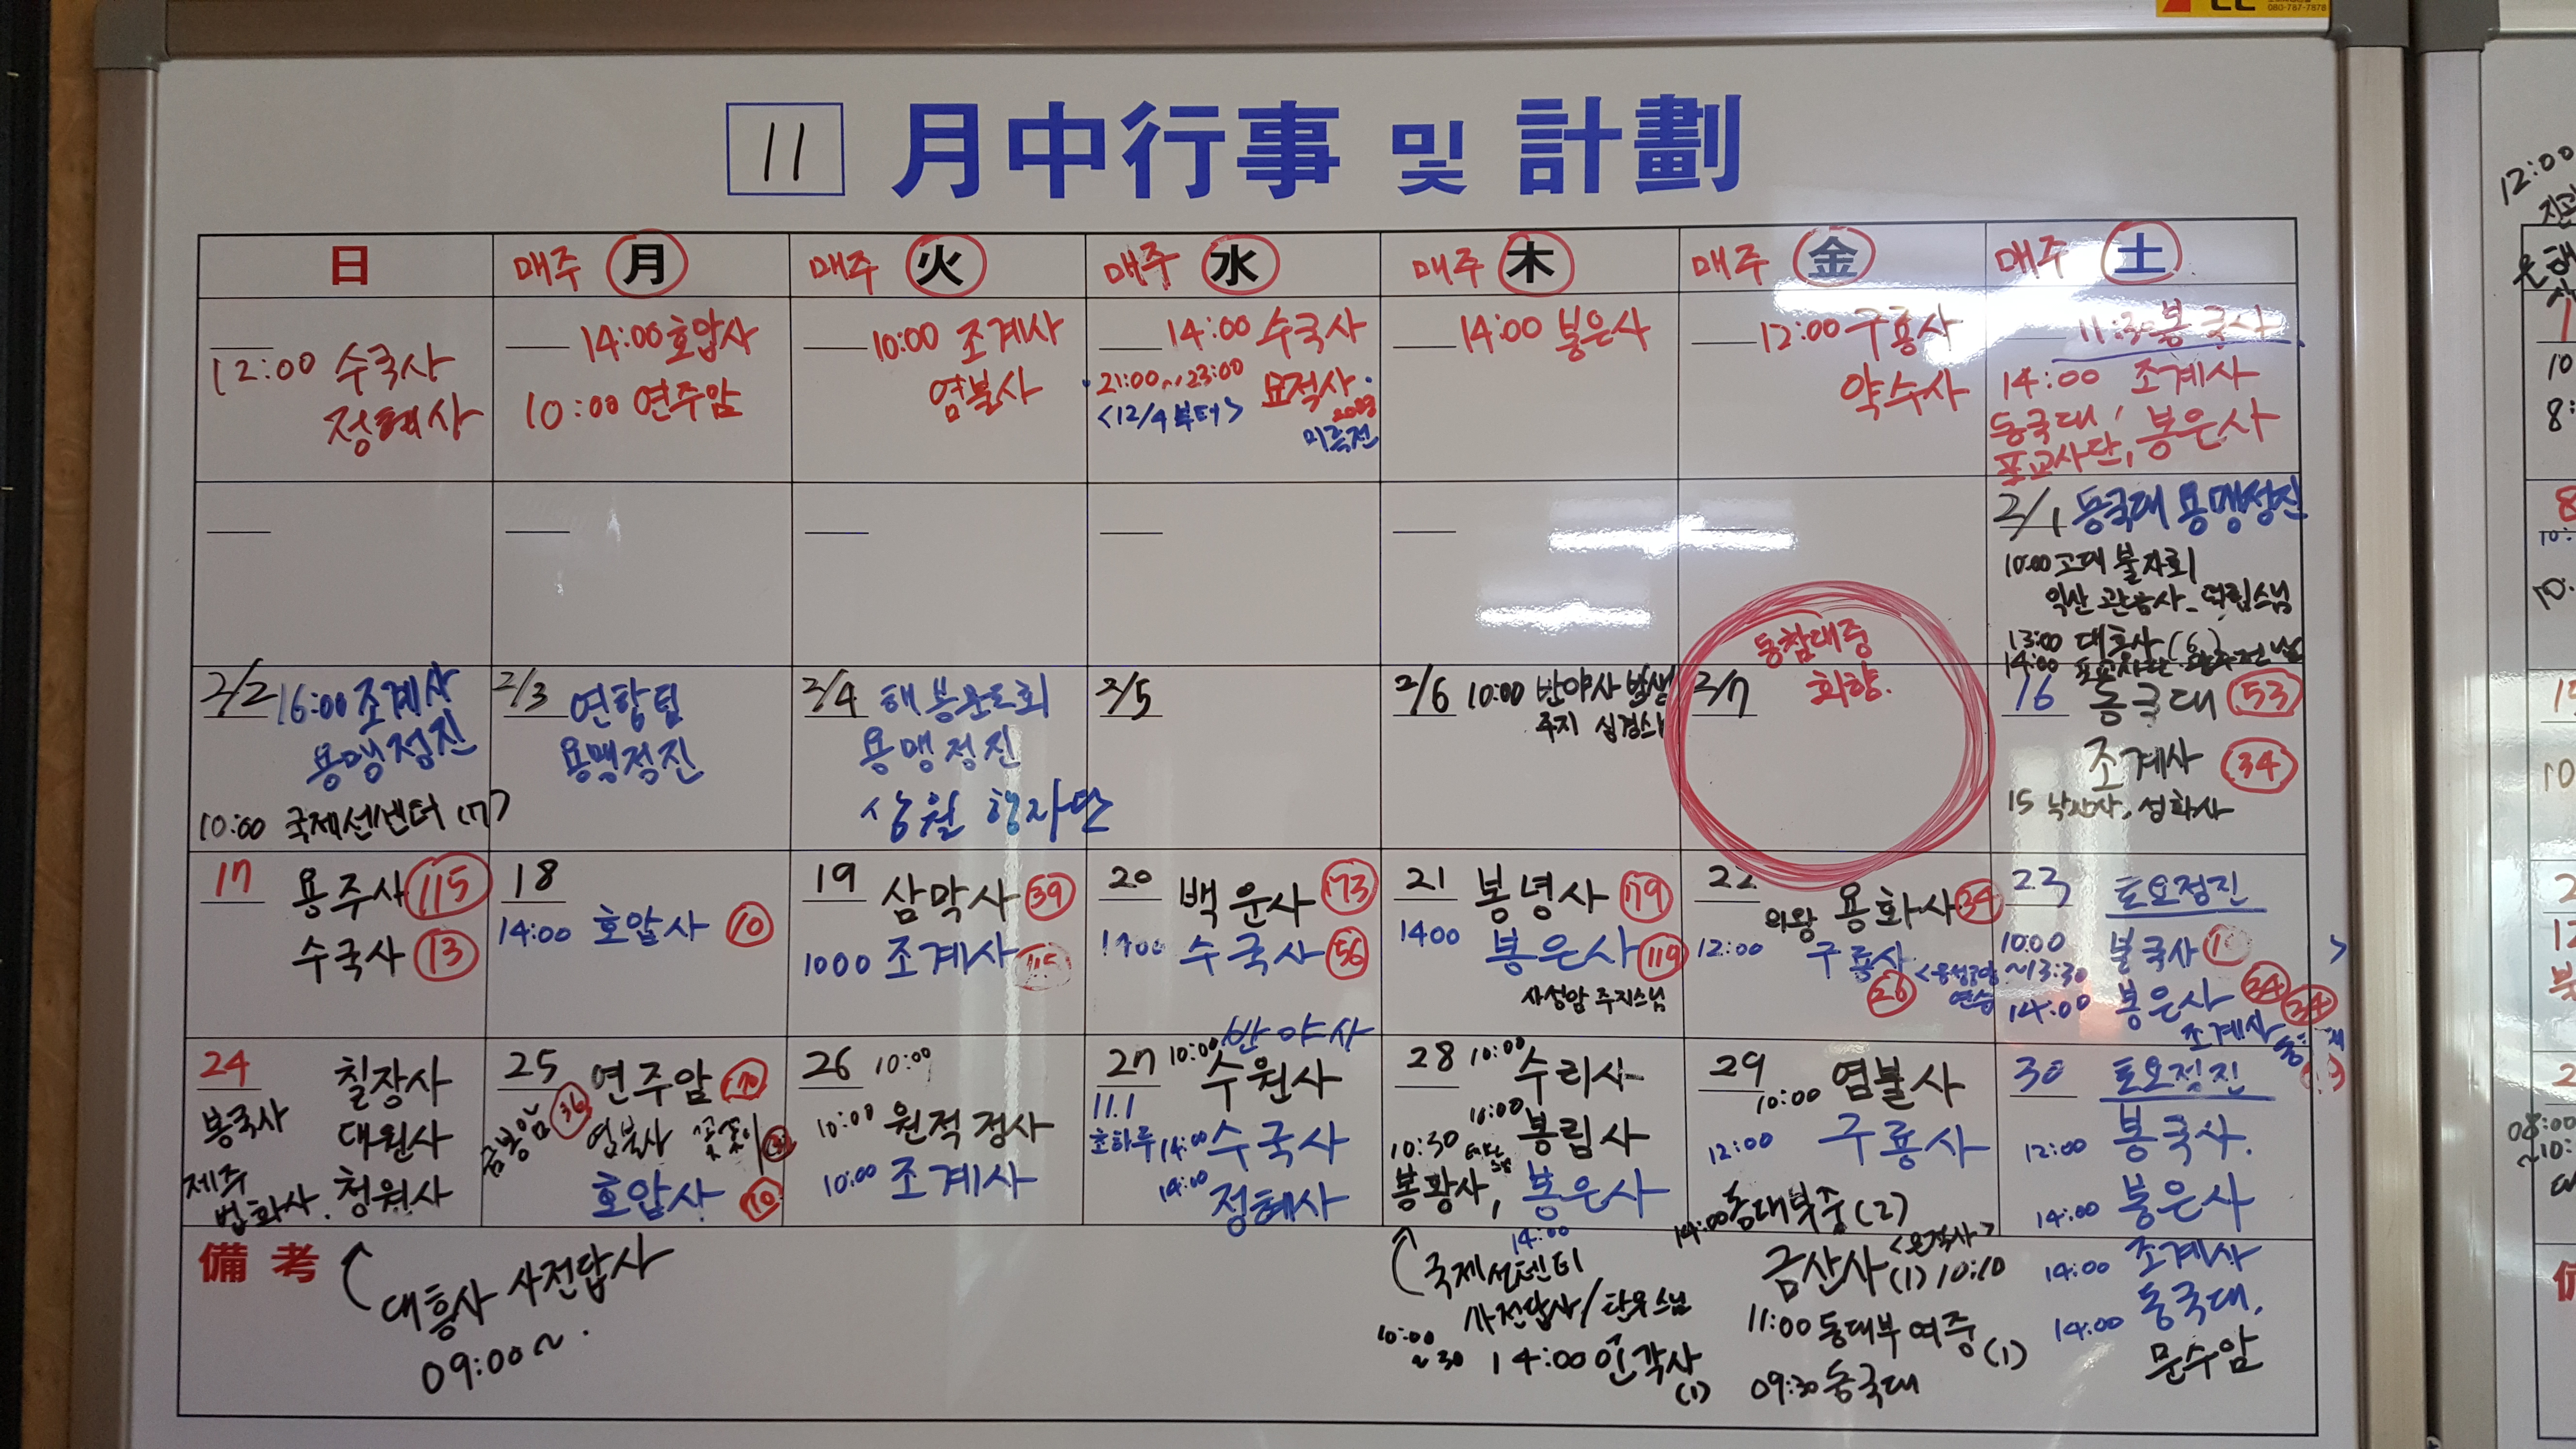 11 月中行事 및 計劃
日
매주 月
매주 火
매주 水
매주 木
매주 金
매주 土
12:00 수국사
정혜사
14:00 호압사
10:00 연주암
10:00 조계사
염불사
14:00 수국사
21:00~23:00 묘적사
<12/4 부터>
14:00 봉은사
12:00 구룡사
약수사
11:30 봉국사
14:00 조계사
동국대,
포교사단, 봉은사
2/1 동국대 용맹정진
10:00 고대 불자회
익산 관음사 덕림스님
13:00 대흥사 (6)
14:00 포교사단
2/2 16:00 조계사
용맹정진
10:00 국제선센터 (7)
2/3 연합팀
용맹정진
2/4 해봉문도회
용맹정진
상월 행자단
2/5
2/6 10:00 반야사
주지
2/7
동참대중
회향.
16 동국대 53
조계사 34
15 낙산사, 성화사
17 용주사 115
수국사 13
18
14:00 호압사 10
19 삼막사 39
1000 조계사
20 백운사 173
1400 수국사 56
21 봉녕사 179
1400 봉은사 119
사성암 주지스님
22 의왕 용화사 34
12:00 구룡사
26
연습
23 토요정진
10:00 봉국사
~13:30
14:00 봉은사 24
조계사 34
24 칠장사
봉국사 대원사
제주
법화사. 청원사
25 연주암 70
금봉암 36 염불사 꽃꽂이
호압사 10
26 10:00
10:00 원적정사
10:00 조계사
반야사
27 10:00 수원사
11.1
초하루 14:00 수국사
14:00 정혜사
28 10:00 수리사
10:00 봉림사
10:30
봉황사, 봉은사
14:00
29 10:00 염불사
12:00 구룡사
14:00 동대부중 (2)
30 토요정진
12:00 봉국사.
14:00 봉은사
備考
대흥사 사전답사
09:00~.
국제선센터
사전답사/탄우스님
10:00
~30 14:00 인각사
(1)
금산사 (1) 10:10
11:00 동대부여중
(1)
09:30 동국대
14:00 조계사
14:00 동국대,
문수암
080-787-7878